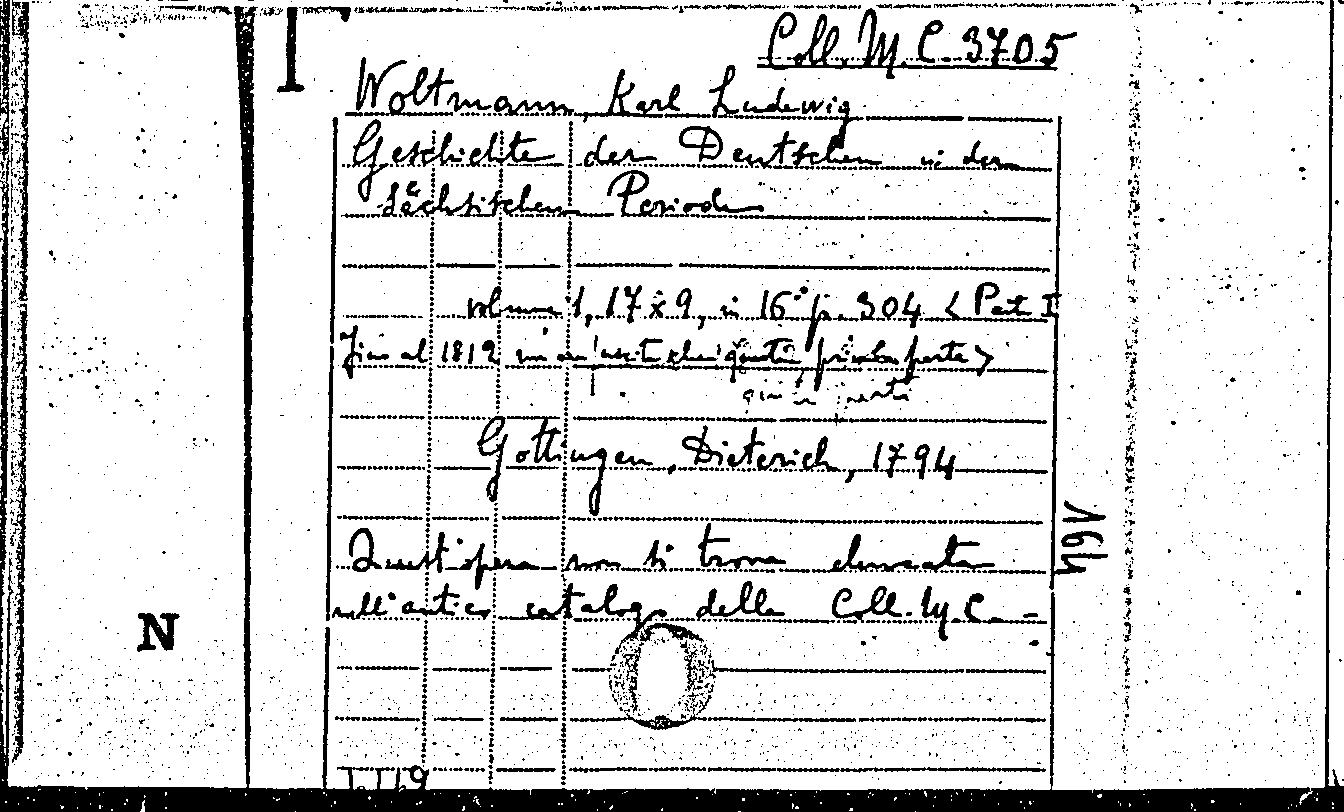 Coll. M. C. 3705
Woltmann, Karl Ludewig
Geschichte der Deutschen in der
sächsischen Periode
volume 1, 17x9, in 16° p. 304 < Part I
Fino al 1812 non era uscita che questa prima parte>
Gottingen, Dieterich, 1794
Quest'opera non si trova elencata
nell'antico catalogo della Coll. M.C. -
N